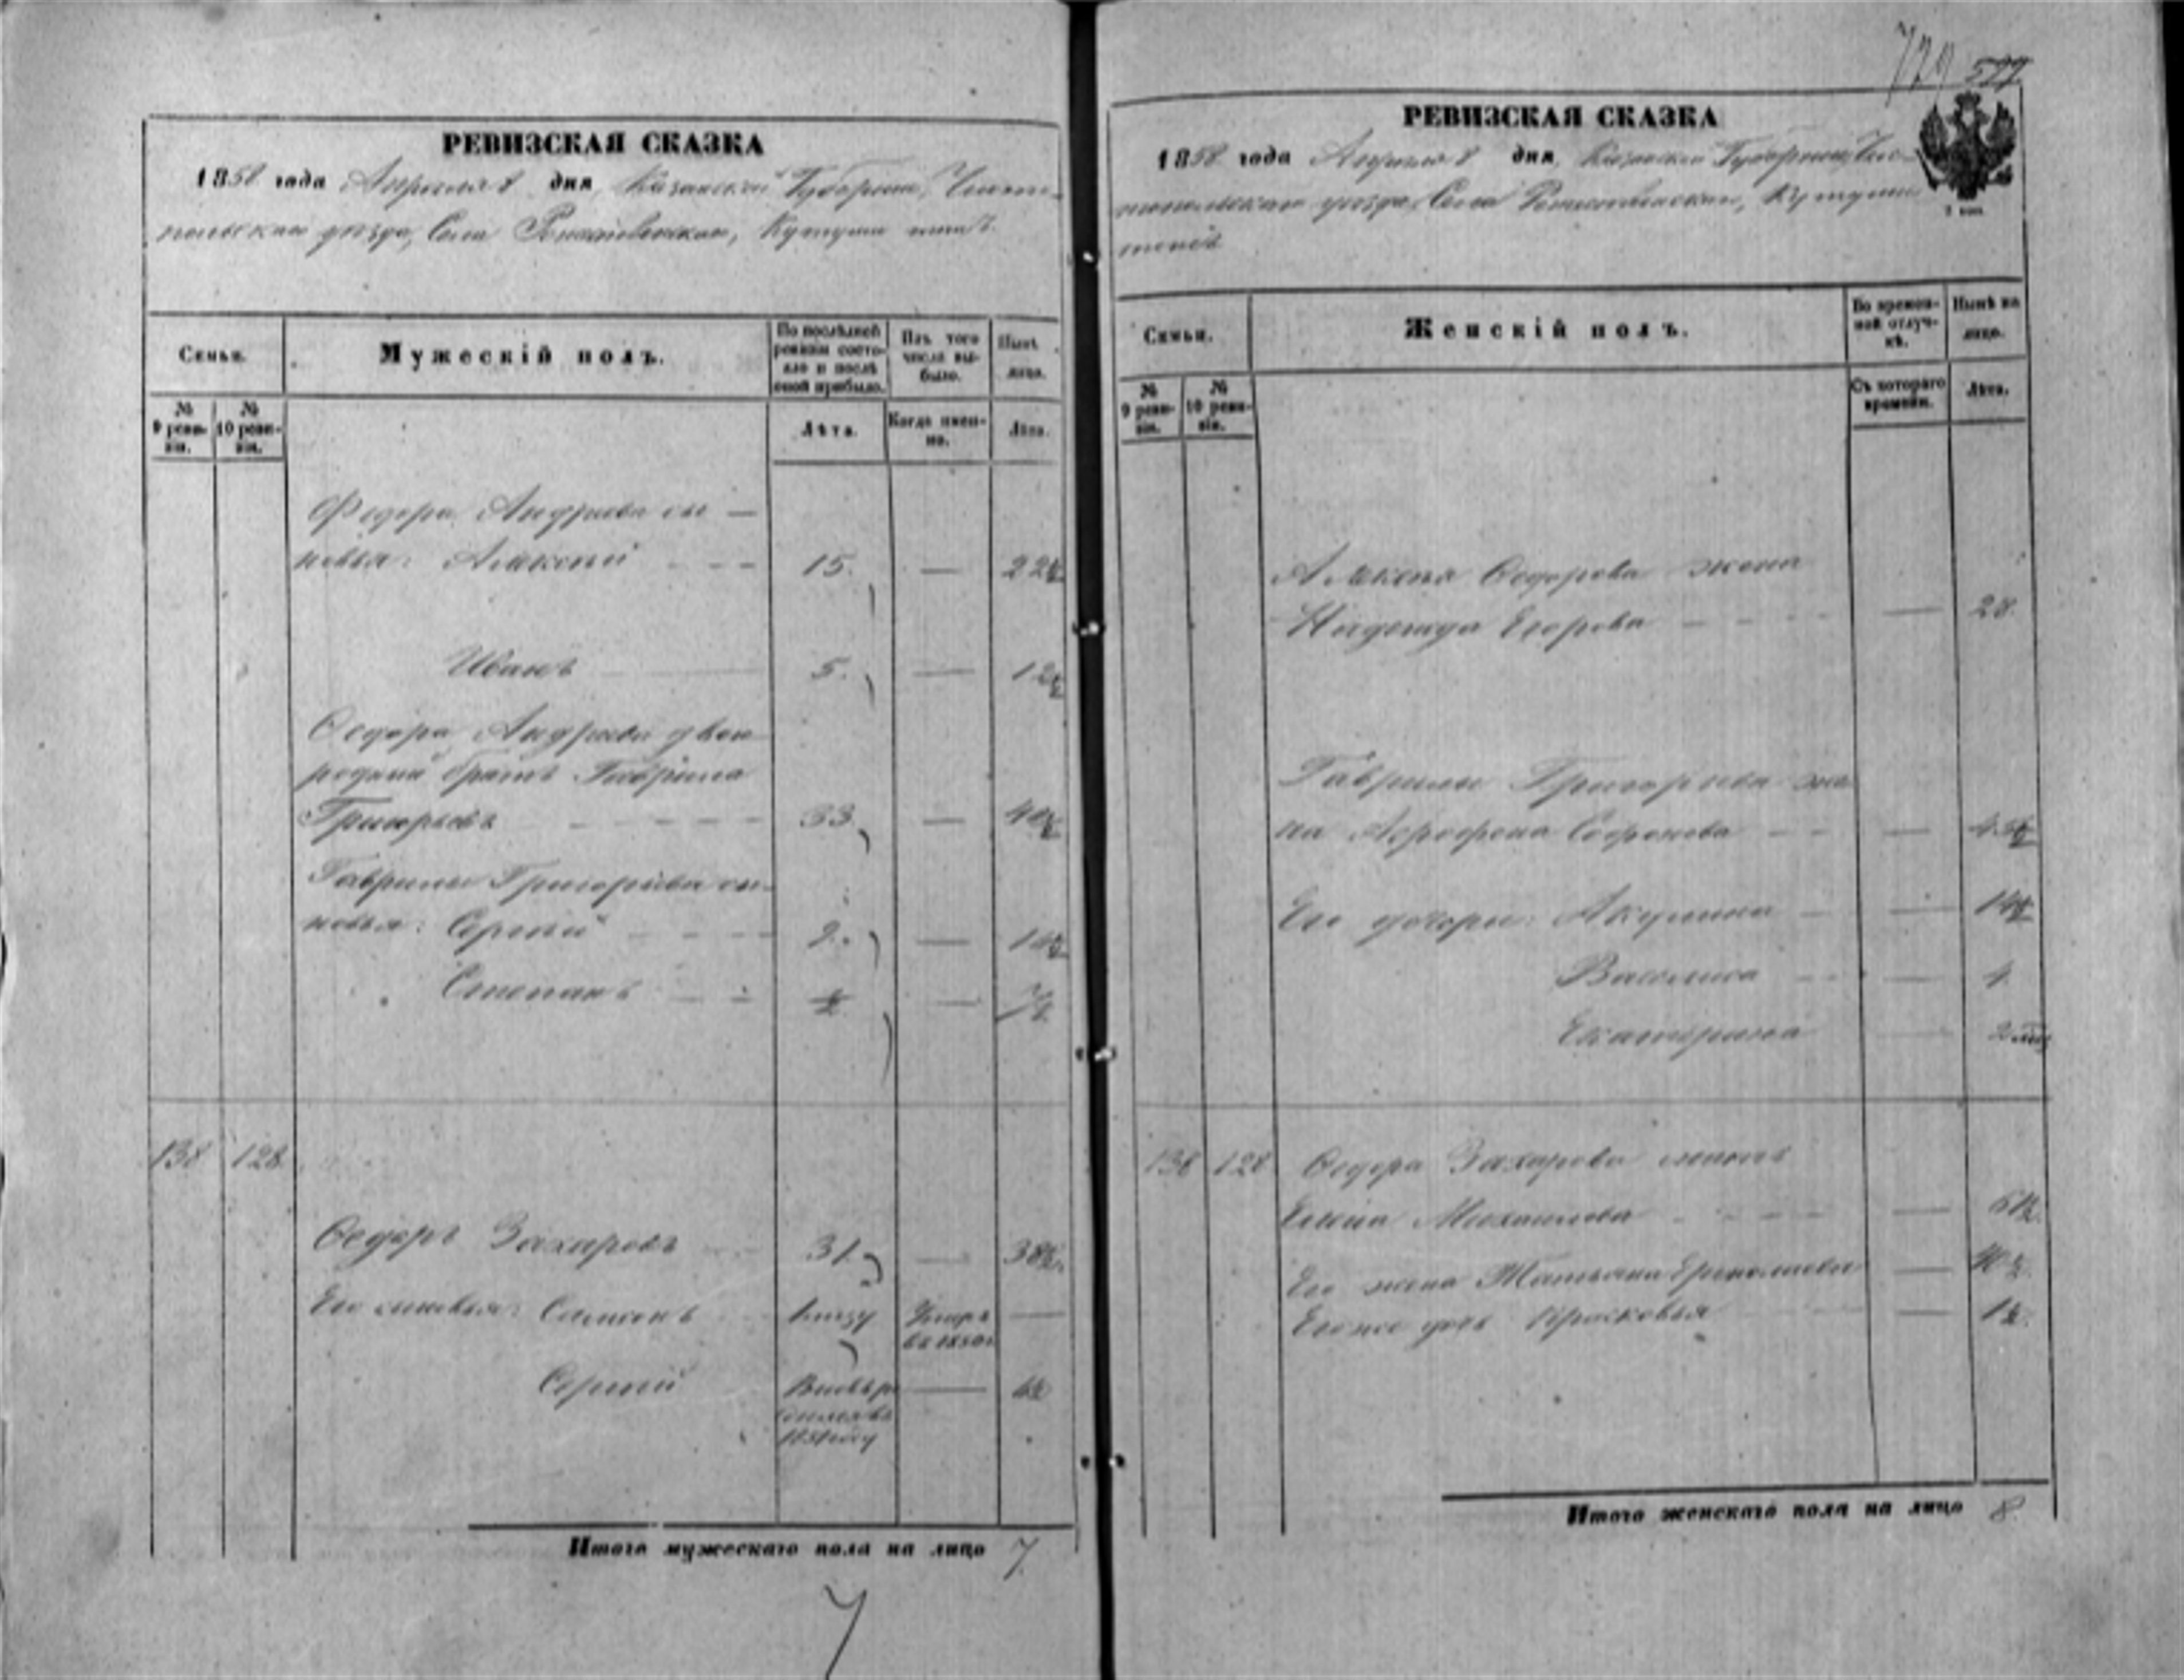 729 577
РЕВИЗСКАЯ СКАЗКА
1858 года Апреля 8 дня, Казанской Губернiи, Чисто-
польскаго уезда, Села Рождественскаго, Кутуши тожъ.
Семьи.
Мужескiй полъ.
По послѣдней ревизiи состо-
яло и послѣ оной прибыло.
Изъ того числа вы-
было.
Нынѣ лицо.
№ 9 реви-
зiи.
№ 10 реви-
зiи.
Лѣта.
Когда имен-
но.
Лѣта.
Федора Андреева сы-
новья: Алексей 15. — 22½
Иванъ 5. — 12½
Федора Андреева двою
родный братъ Гаврила
Григорьевъ 33 — 40½
Гаврилы Григорьева сы-
новья: Сергей —
Степанъ ½ —
138 128
Федоръ Захаровъ 31 — 38½
Его сыновья: Умеръ —
Сергей —
Итого мужескаго пола на лицо 7.
7
РЕВИЗСКАЯ СКАЗКА
1858 года Апреля 8 дня, Казанской Губернiи, Чис-
топольскаго уезда, Села Рождественскаго, Кутуши
тожъ
Семьи.
Женскiй полъ.
Во времен-
ной отлуч-
кѣ.
Нынѣ на
лицо.
№ 9 реви-
зiи.
№ 10 реви-
зiи.
Съ котораго
времени.
Лѣта.
Алексея Федорова жена
Надежда Егорова — 28.
Гаврилы Григорьева же
на Софронова —
Его дочери: Акулина —
Василиса — 4.
Екатерина —
138 128 Федора Захарова
Михайлова —
Его жена Татьяна Ермолаева — 40½
Его же дочь Прасковья — 1½
Итого женскаго пола на лицо 8.